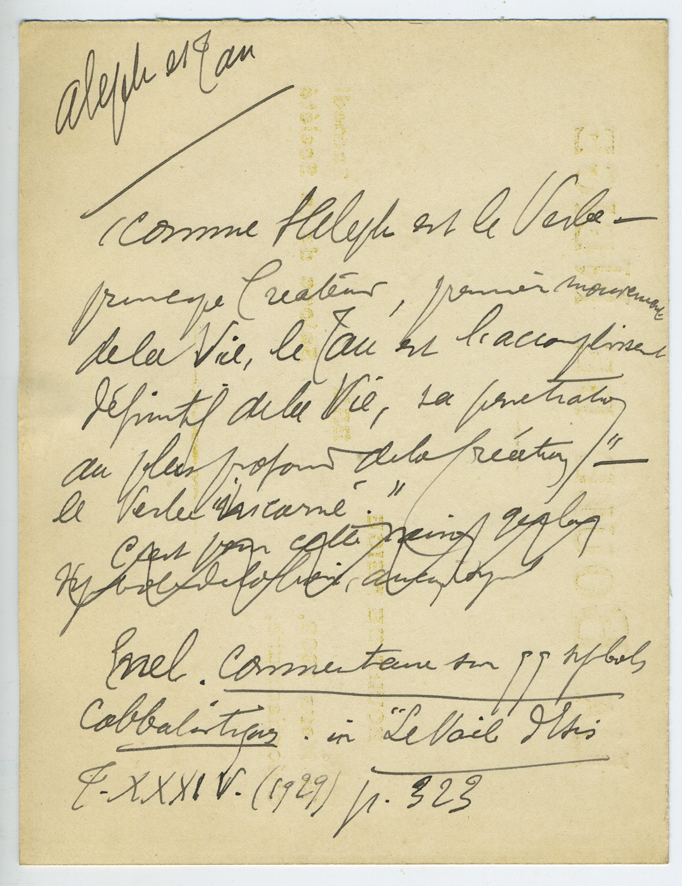 Aleph et Tau
"Comme Aleph est le Verbe –
principe Créateur, premier mouvement
de la Vie, le Tau est l'accomplissement
définitif de la Vie, sa pénétration
au plus profond de la Création" –
le Verbe "incarné."
c'est pour cette raison
symbole de la
Enel. Commentaire sur qq symbols
cabbalistiques. in "Le Voile d'Isis
T. XXXIV. (1929) p. 323